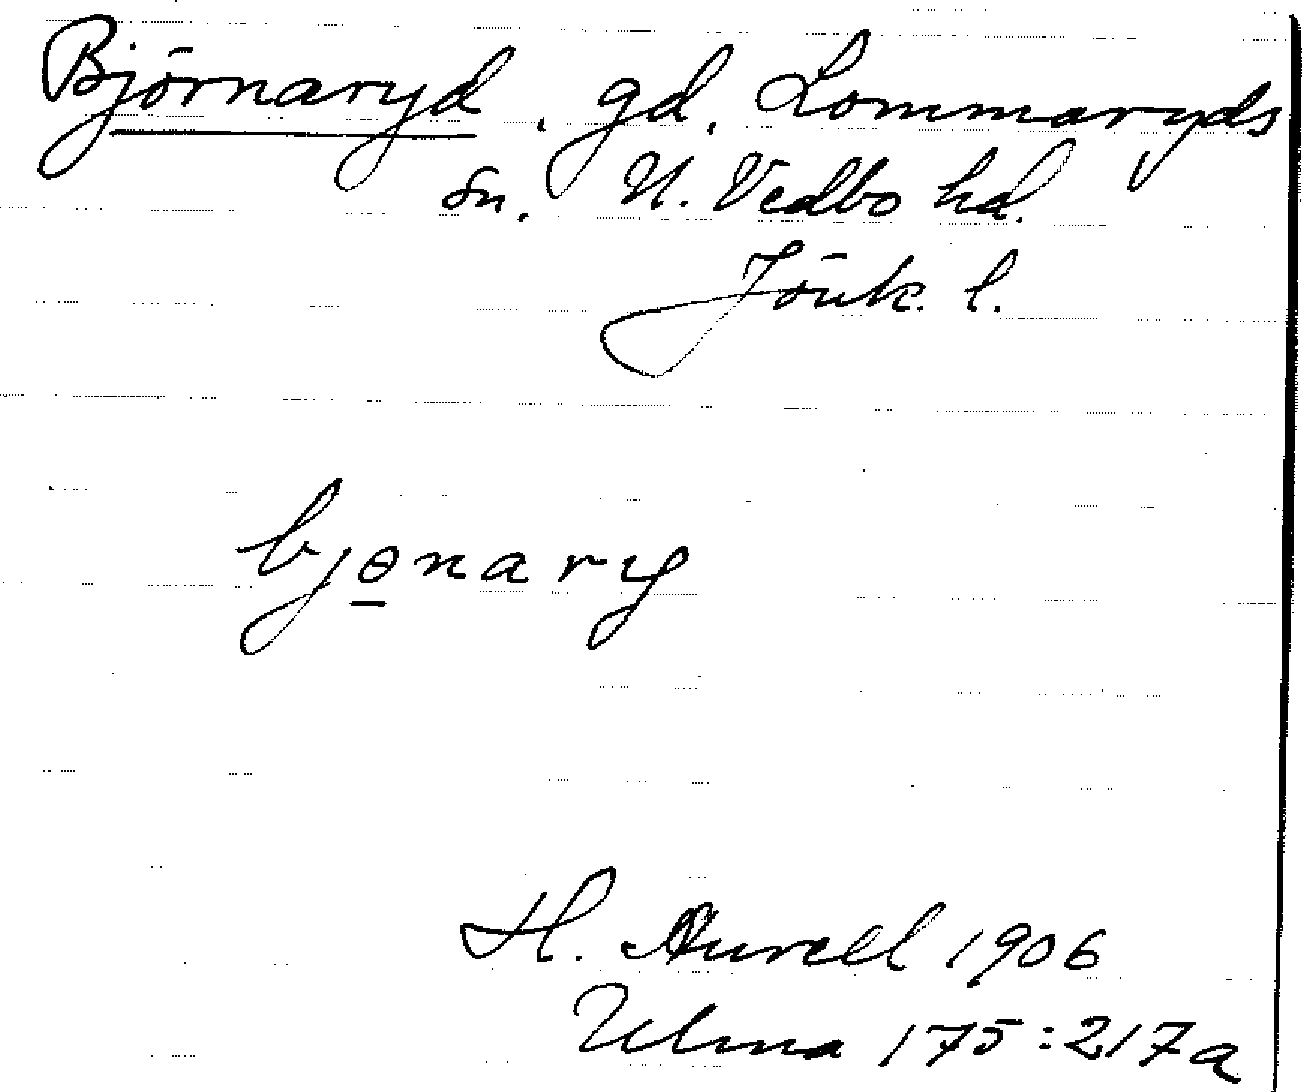 Björnaryd, gd, Lommaryds
sn. N. Vedbo hd.
Jönk. l.
bjɵnary
H. Aurell 1906
Ulma 175:217a